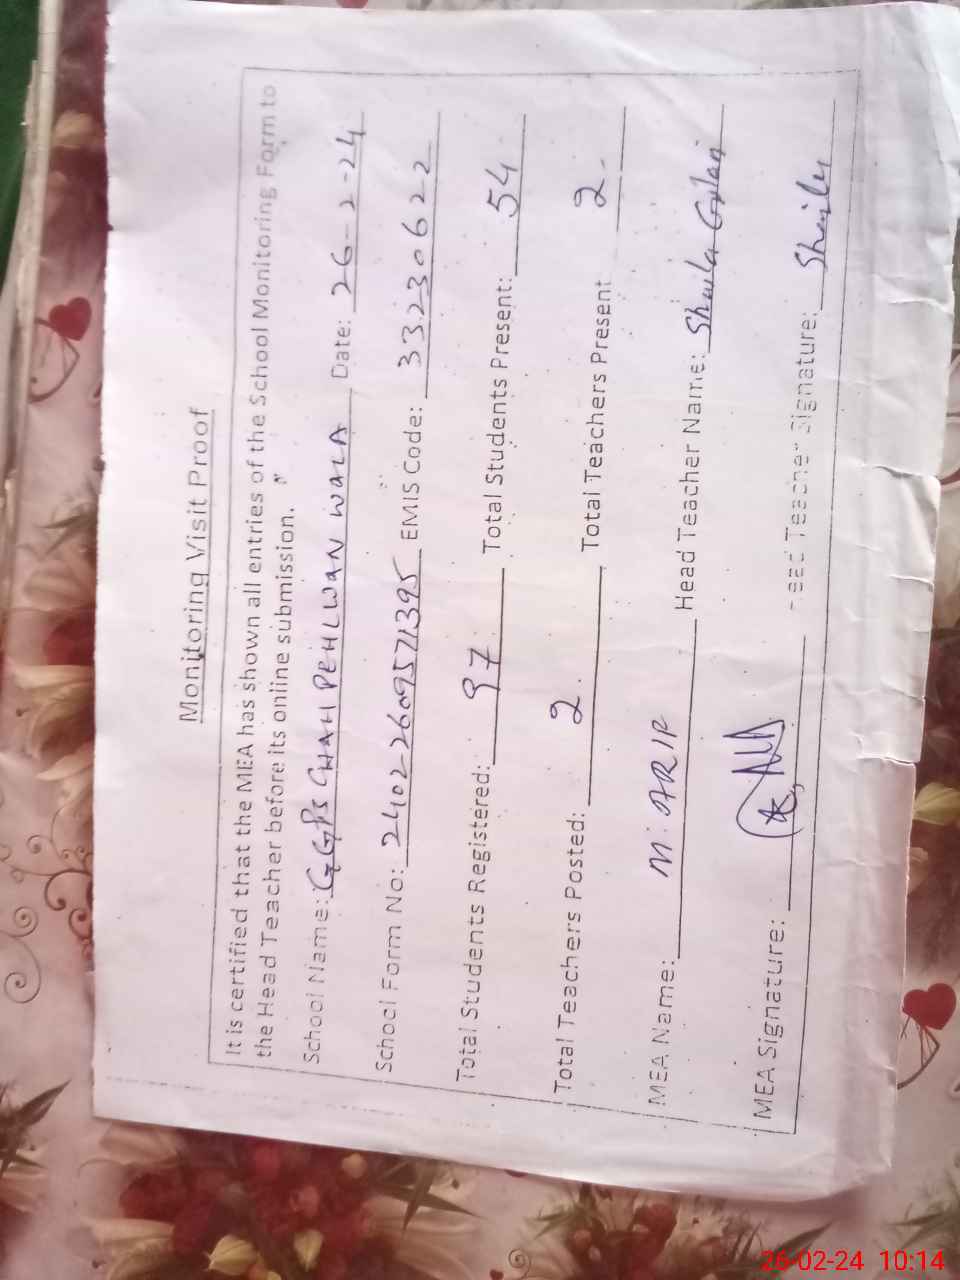 Monitoring Visit Proof
It is certified that the MEA has shown all entries of the School Monitoring Form to
the Head Teacher before its online submission.
School Name: GGPS CHAH PEHLWAN WALA Date: 26-2-24
School Form No: 24022609571395 EMIS Code: 33230622
Total Students Registered: 97 Total Students Present: 54
Total Teachers Posted: 2. Total Teachers Present 2.
MEA Name: M. ARIF Head Teacher Name:
MEA Signature: Head Teacher Signature:
26-02-24 10:14